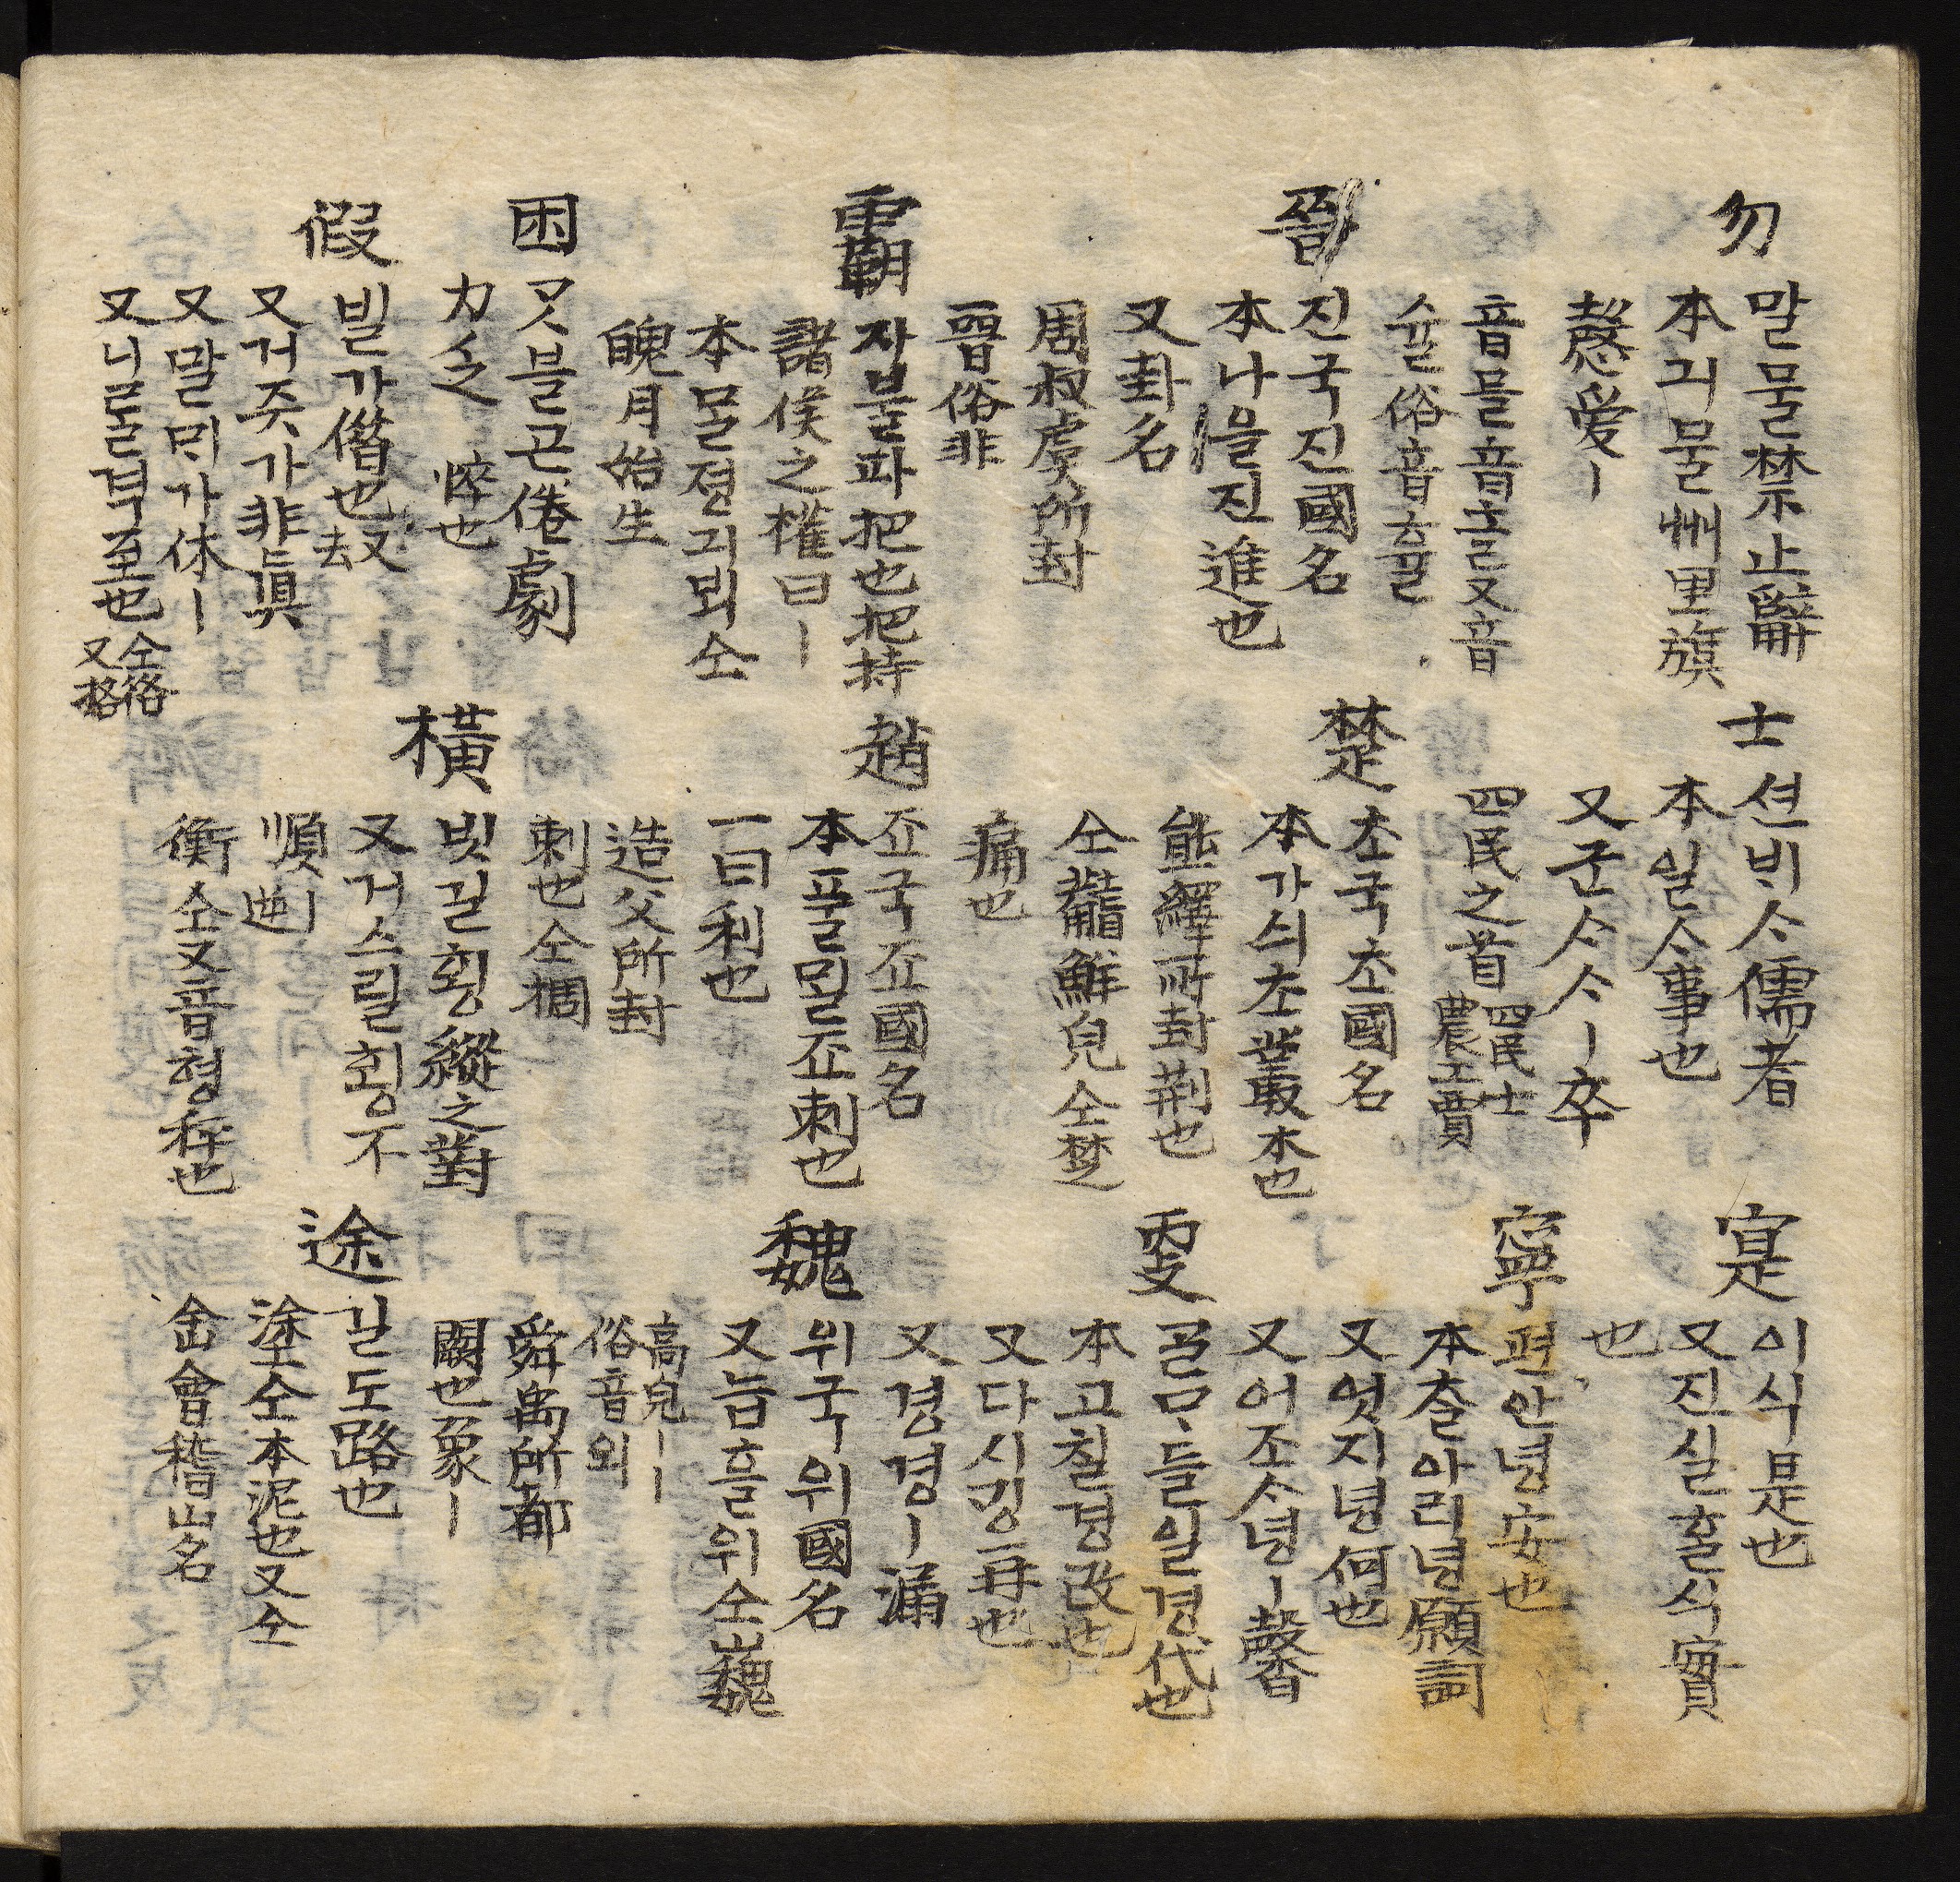 勿
말물禁止辭
本긔물州里旗
慤愛ㅣ
士
션비ᄉ儒者
本일ᄉ事也
又군ᄉᄉㅣ卒
四民之首
四民士
農工賈
寔
이식是也
又진실홀식實
也
寧
편안녕安也
本출아리녕願詞
又엇지녕何也
又어조ᄉ녕ㅣ馨
晉
진국진國名
本나을진進也
又卦名
周叔虞所封
晋俗非
楚
초국초國名
本가싀초叢木也
熊繹所封荆也
仝齼鮮皃仝椘
痛也
更
골ᄆᆞ들일경代也
本고칠경改也
又다시깅再也
又경경경ㅣ漏
霸
자블파把也把持
諸侯之權曰ㅣ
魄月始生
趙
죠국죠國名
本플ᄆᆡᆯ죠刺也
一曰利也
造父所封
刺也仝
魏
위국위國名
又놉흘위仝巍
高皃ㅣㅣ
俗音외
舜禹所都
闕也象ㅣ
困
ᄀᆞᆺ블곤倦劇
力乏 悴也
橫
빗길횡縱之對
又거스릴횡不
順ㅣ逆
衡仝又音형秤也
假
빌가借也又去
又거즛가非眞
又말ᄆᆡ가休ㅣ
又니를격至也
仝徦
又格
途
길도路也
塗仝本泥也又仝
會稽山名